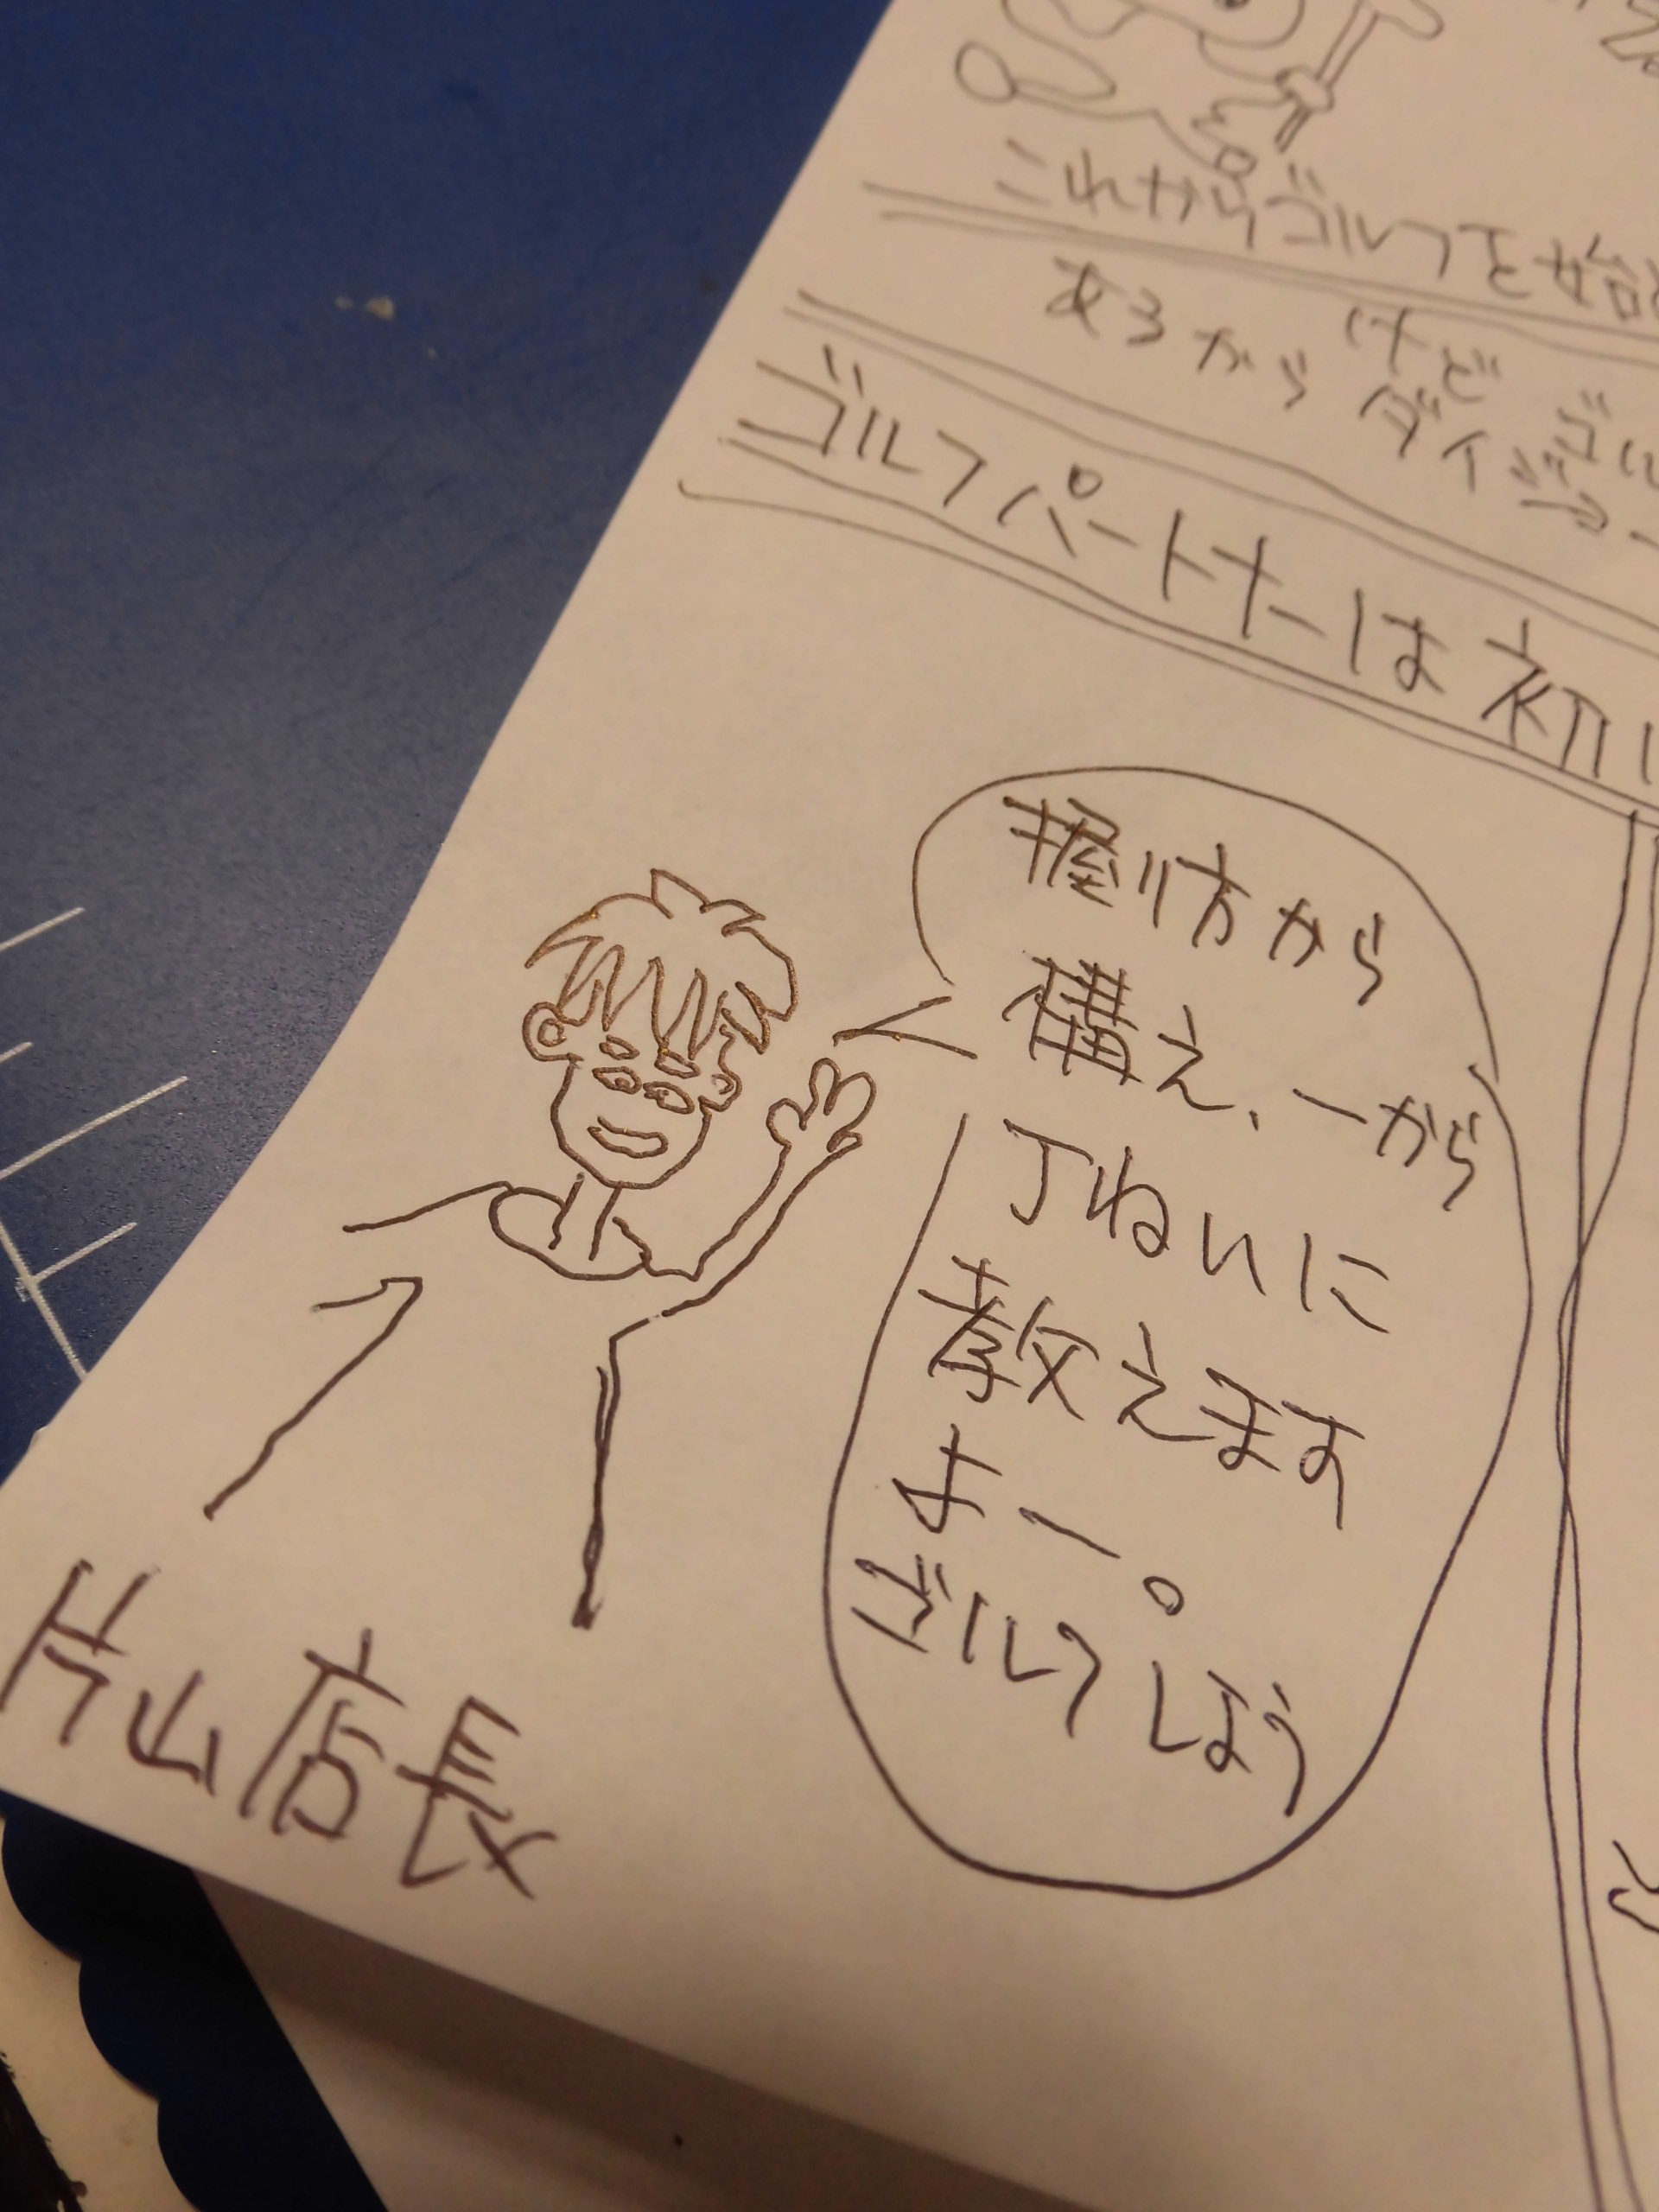 これからゴルフを始
あるから
けど
ゴル
ダイジ
ゴルフパートナーは初
握り方から
構え、一から
丁ねいに
教えます
よー。
ゴルフしよう
片山店長